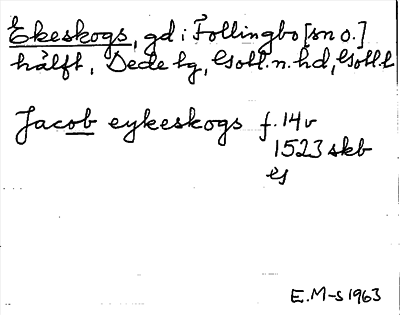 Ekeskogs, gd i Follingbo [sn o.]
hälft, Dede hg, Gotl. n. hd, Gotl. l
Jacob eykeskogs f. 14v
1523 skb
es
E.M-s 1963